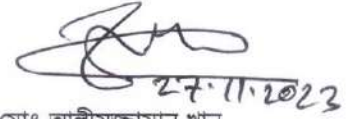 27.11.2023
মোঃ আলীমুজ্জামান খান